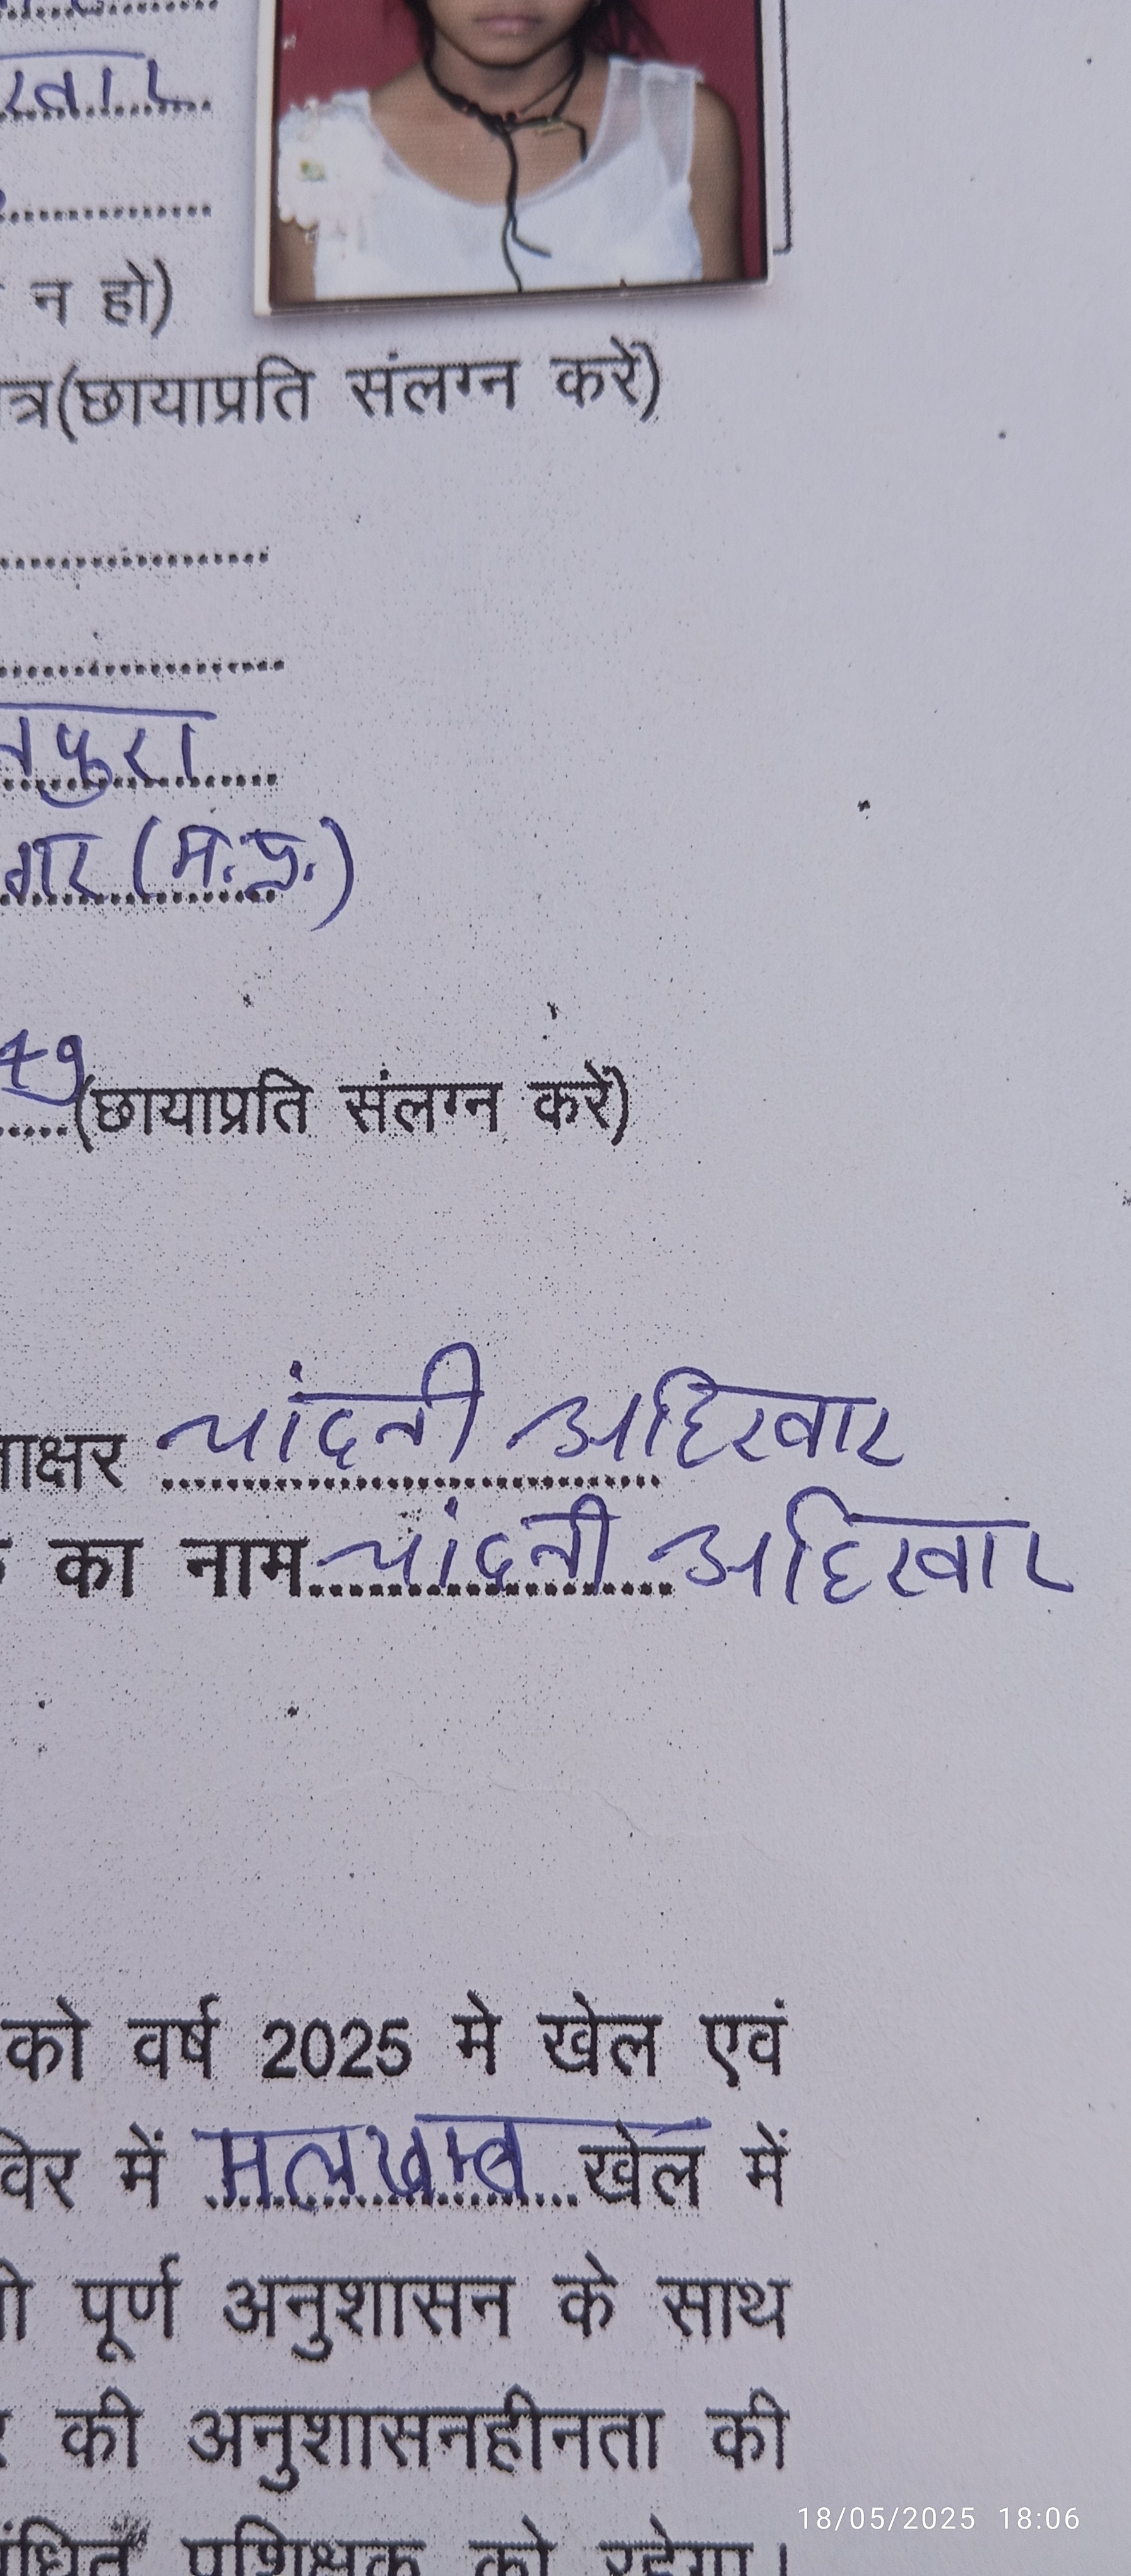 न हो)
(छायाप्रति संलग्न करें)
पुरा
(म.प्र.)
49
(छायाप्रति संलग्न करें)
चांदनी अहिरवार
का नाम चांदनी अहिरवार
को वर्ष 2025 मे खेल एवं
में मलखम्ब खेल में
पूर्ण अनुशासन के साथ
की अनुशासनहीनता की
18/05/2025 18:06
प्रशिक्षक को रहेगा।